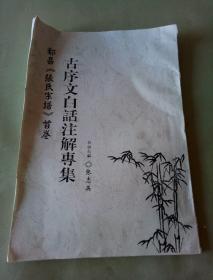 鄢嘉《張氏宗譜》首卷
古序文白話注解專集
張志英